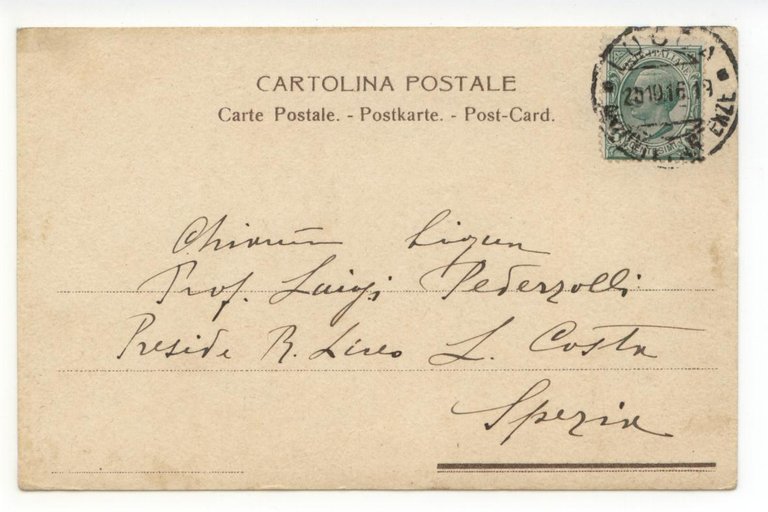 CARTOLINA POSTALE
Carte Postale. - Postkarte. - Post-Card.
LUCCA
Prof. Luigi Pederzolli
Preside R. Liceo L. Costa
Spezia